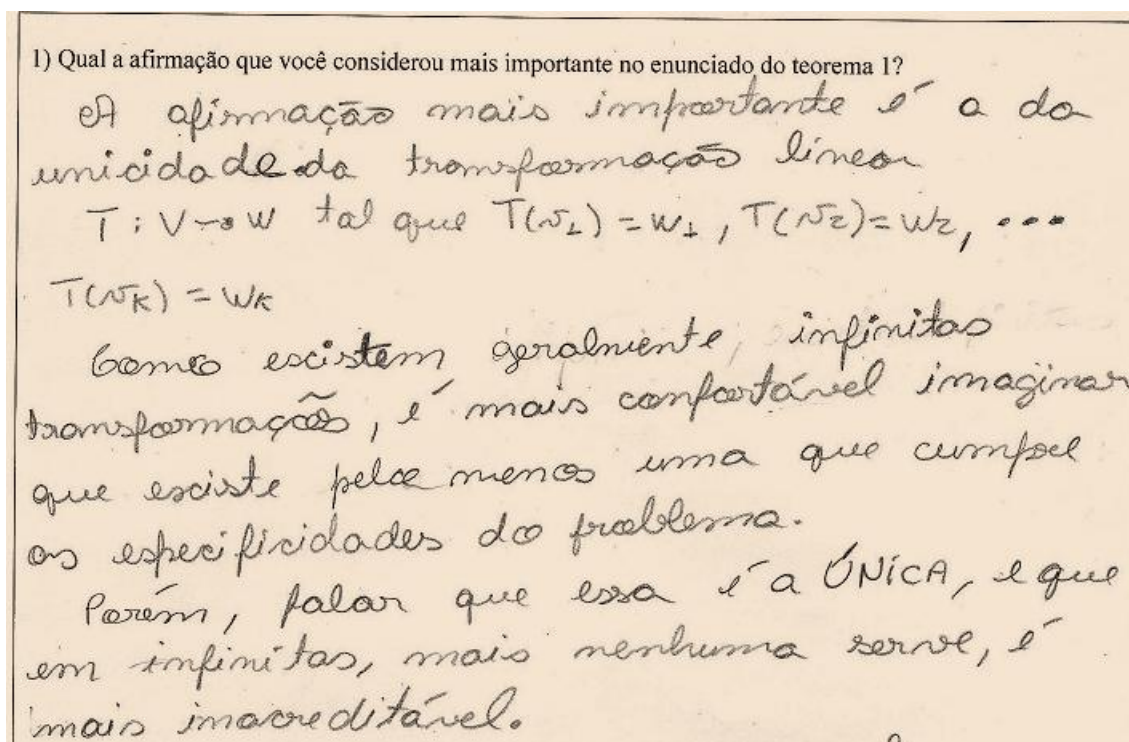 1) Qual a afirmação que você considerou mais importante no enunciado do teorema 1?
A afirmação mais importante é a da
unicidade da transformação linear
T: V→W tal que T(v1) = w1, T(v2) = w2, ...
T(vk) = wk
Como existem geralmente, infinitas
transformações, é mais confortável imaginar
que existe pelo menos uma que cumpre
as especificidades do problema.
Porém, falar que essa é a ÚNICA, e que
em infinitas, mais nenhuma serve, é
mais inacreditável.